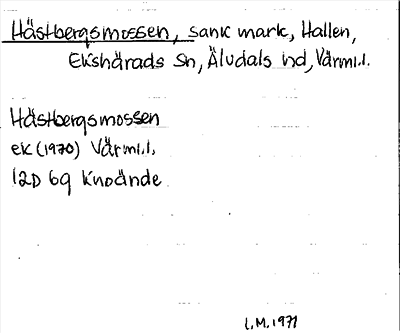 Hästbergsmossen, sank mark, Hallen,
Ekshärads Sn, Älvdals hd, Värml.l.
Hästbergsmossen
ek (1970) Värml.l.
12D 6g Knoände
L.M. 1971